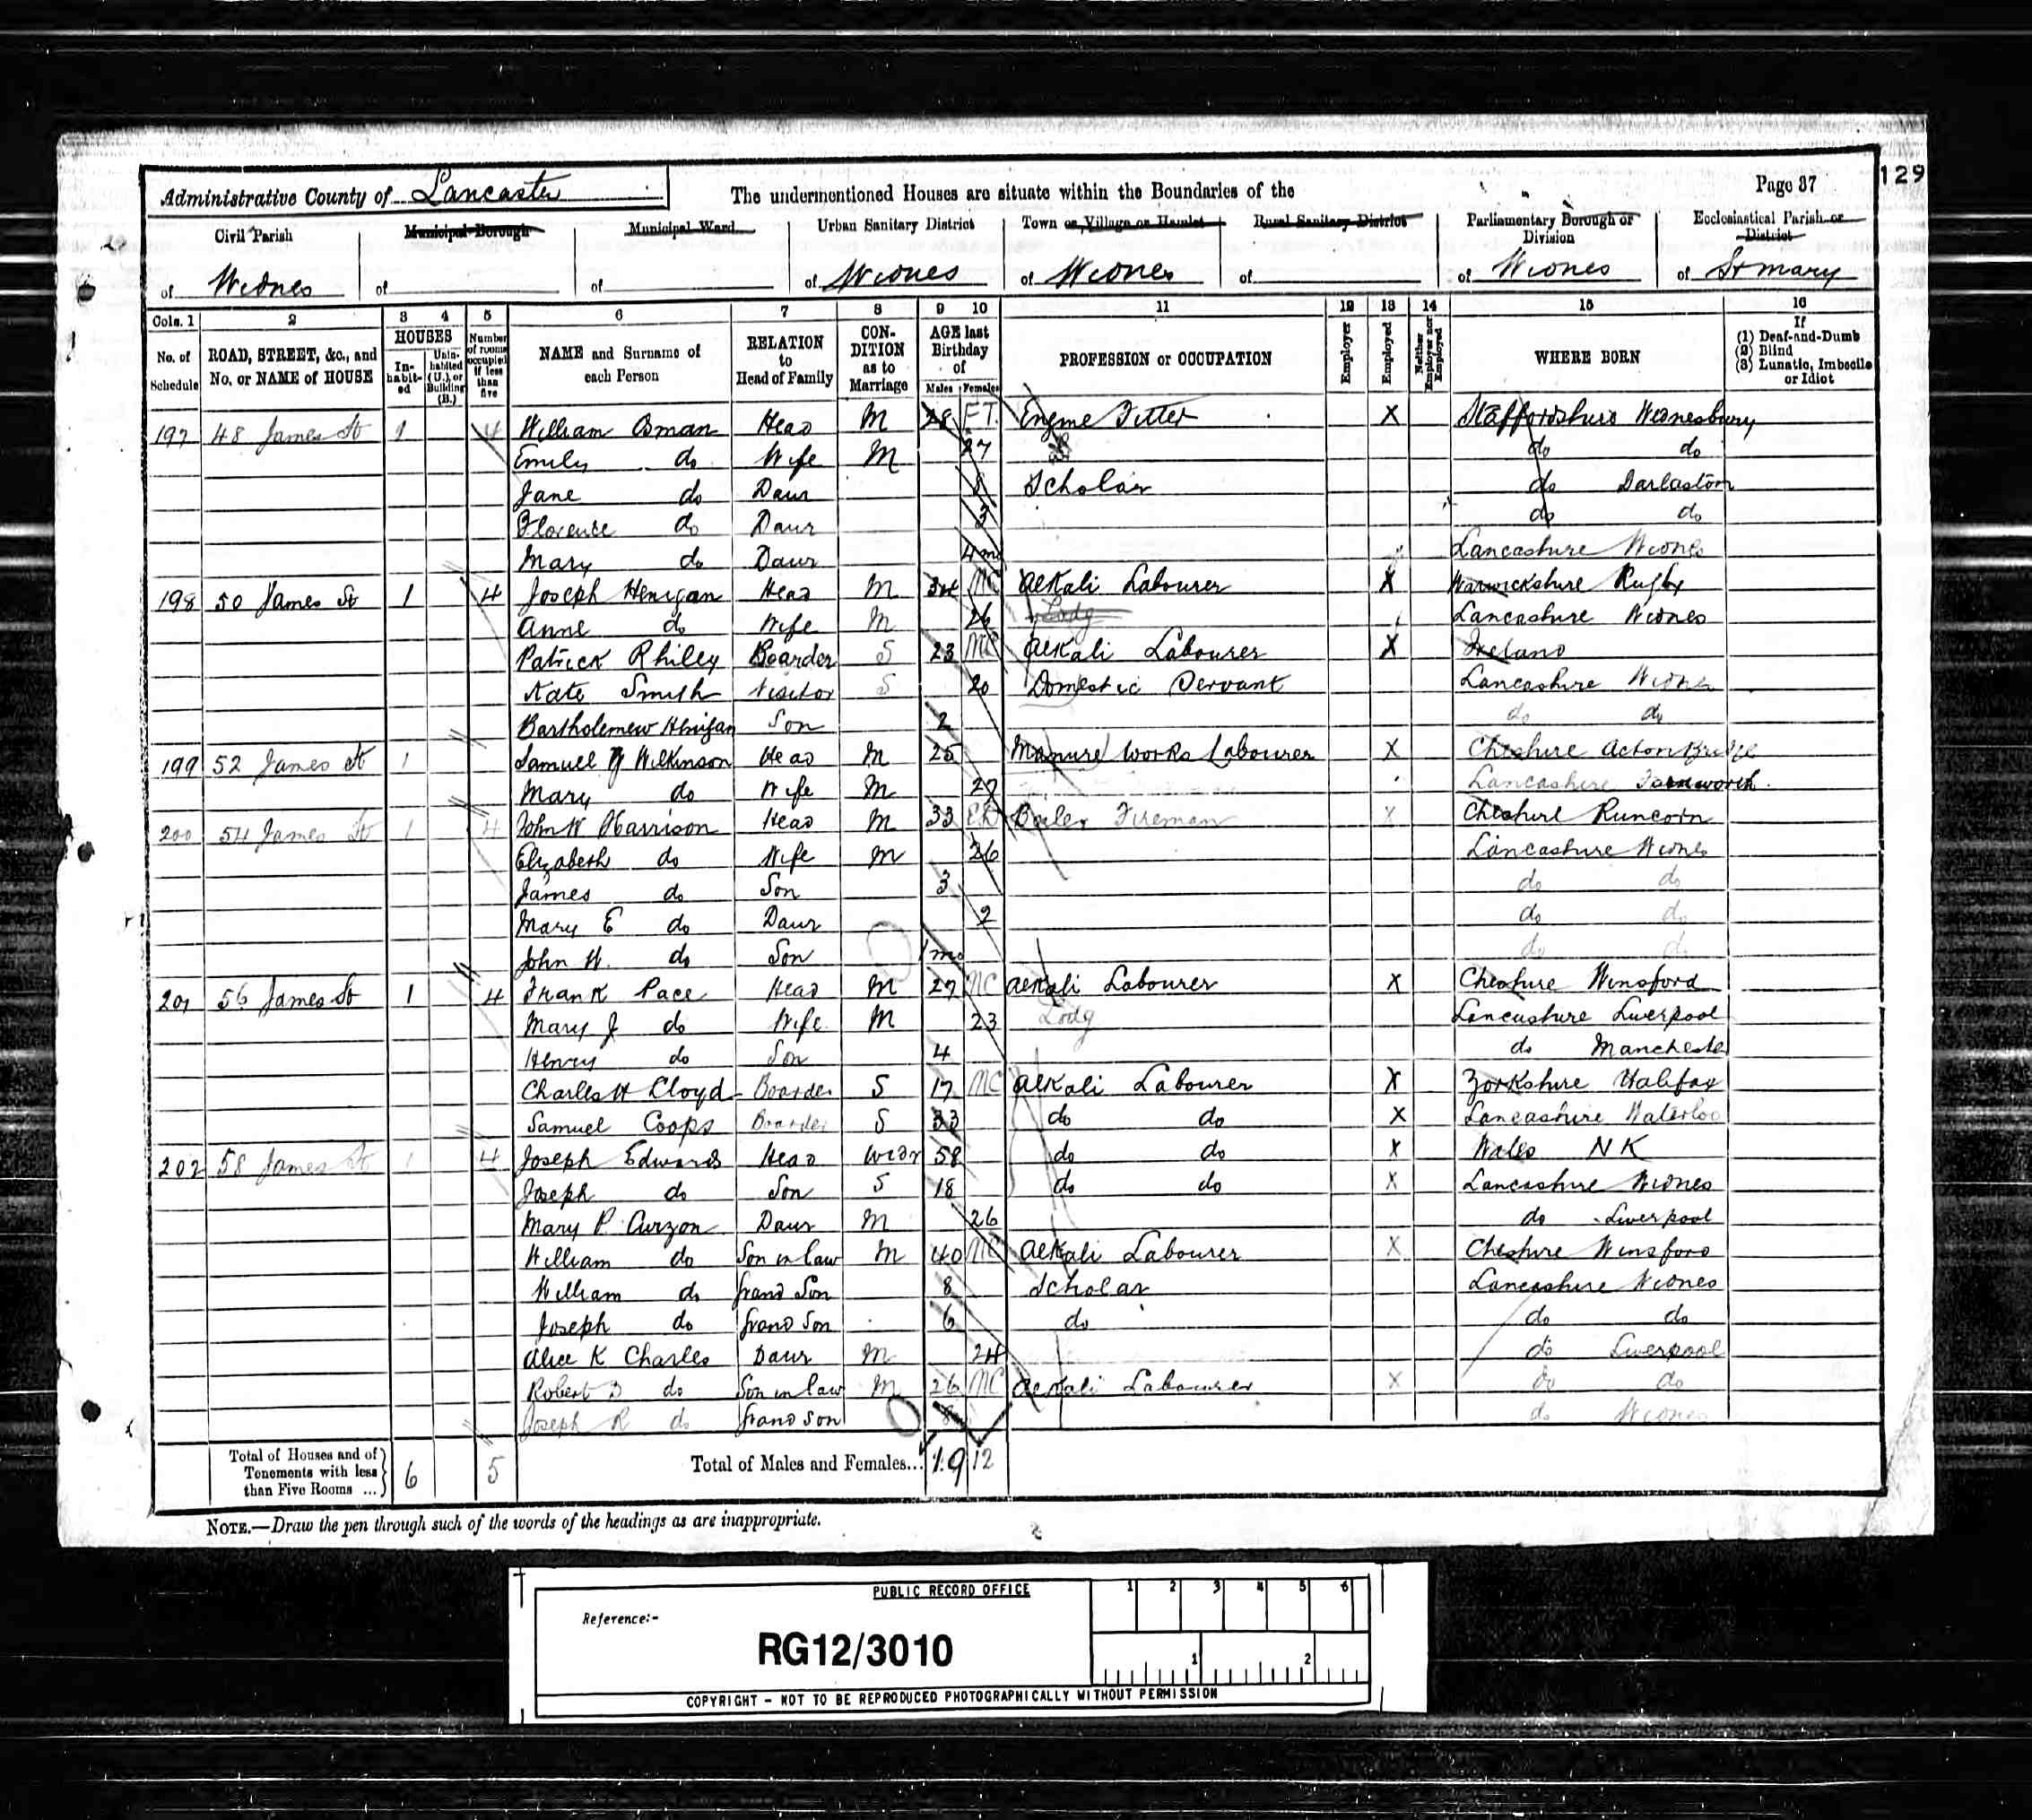 129
Administrative County of Lancaster The undermentioned Houses are situate within the Boundaries of the Page 37
Civil Parish Municipal Borough Municipal Ward Urban Sanitary District Town or Village or Hamlet Rural Sanitary District Parliamentary Borough or Division Ecclesiastical Parish or District
of Widnes of of of Widnes of Widnes of of Widnes of St Mary
Cols. 1 2 3 4 5 6 7 8 9 10 11 12 13 14 15 16
No. of Schedule ROAD, STREET, &c., and No. or NAME of HOUSE HOUSES In-habit-ed Unin-habited (U.), or Building (B.) Number of rooms occupied if less than five NAME and Surname of each Person RELATION to Head of Family CON-DITION as to Marriage AGE last Birthday of Males Females PROFESSION or OCCUPATION Employer Employed Neither Employer nor Employed WHERE BORN If (1) Deaf-and-Dumb (2) Blind (3) Lunatic, Imbecile or Idiot
197 48 James St 1 4 William Osman Head M 28 F.T. Engine Fitter X Staffordshire Wednesbury
Emily do Wife M 27 do do
Jane do Daur 8 Scholar do Darlaston
Florence do Daur 3 do do
Mary do Daur 4 mo Lancashire Widnes
198 50 James St 1 4 Joseph Henigan Head M 34 MC Alkali Labourer X Warwickshire Rugby
Anne do Wife M 26 Lodg Lancashire Widnes
Patrick Rhiley Boarder S 23 MC Alkali Labourer X Ireland
Kate Smith Visitor S 20 Domestic Servant Lancashire Widnes
Bartholemew Henigan Son 2 do do
199 52 James St 1 Samuel Wilkinson Head M 25 Manure Works Labourer X Cheshire Acton Bridge
Mary do Wife M 27 Lancashire Farnworth
200 54 James St 1 4 John W Harrison Head M 33 Boiler Fireman X Cheshire Runcorn
Elizabeth do Wife M 26 Lancashire Widnes
James do Son 3 do do
Mary E do Daur 2 do do
John W. do Son 1 mo do do
201 56 James St 1 4 Frank Pace Head M 27 MC Alkali Labourer X Cheshire Winsford
Mary J do Wife M 23 Lodg Lancashire Liverpool
Henry do Son 4 do Manchester
Charles H Lloyd Boarder S 17 MC Alkali Labourer X Yorkshire Halifax
Samuel Coops Boarder S 33 do do X Lancashire Waterloo
202 58 James St 1 4 Joseph Edwards Head Widr 58 do do X Wales NK
Joseph do Son S 18 do do X Lancashire Widnes
Mary P Curzon Daur M 26 do Liverpool
William do Son in law M 40 MC Alkali Labourer X Cheshire Winsford
William do Grand Son 8 Scholar Lancashire Widnes
Joseph do Grand Son 6 do do do
Alice K Charles Daur M 24 do Liverpool
Robert D do Son in law M 26 MC Alkali Labourer X do do
Joseph R do Grand Son do Widnes
Total of Houses and of Tenements with less than Five Rooms ... 6 5 Total of Males and Females... 19 12
NOTE.—Draw the pen through such of the words of the headings as are inappropriate.
PUBLIC RECORD OFFICE 1 2 3 4 5 6
Reference:-
RG12/3010 1 2
COPYRIGHT - NOT TO BE REPRODUCED PHOTOGRAPHICALLY WITHOUT PERMISSION